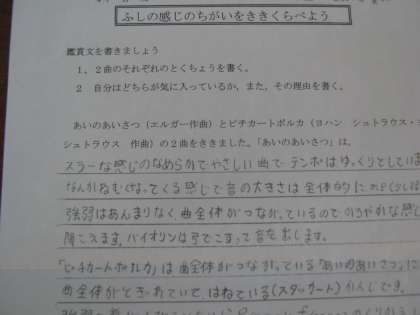 ふしの感じのちがいをききくらべよう
鑑賞文を書きましょう
1、2曲のそれぞれのとくちょうを書く。
2 自分はどちらが気に入っているか、また、その理由を書く。
あいのあいさつ(エルガー作曲)とピチカートポルカ(ヨハン シュトラウス・
シュトラウス 作曲)の2曲をききました。「あいのあいさつ」は、
スラーな感じのなめらかでやさしい曲でテンポはゆっくりとしていま
なんかねむくなってくる感じで音の大きさは全体的に
強弱はあんまりなく、曲全体がつながっているので かろやかな感じ
聞こえます。バイオリンは弓でこすって音を出します。
「ピチカートポルカ」は曲全体がつながっている「あいのあいさつ」に
曲全体がとぎれていて、はねている(スタッカート)かんじです。